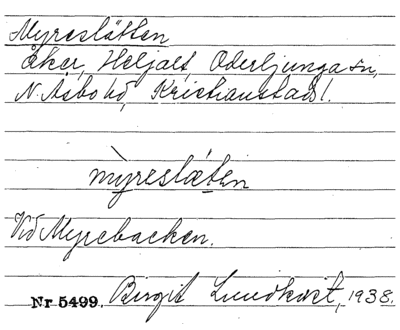 Myreslätten
Åker, Heljalt, Oderljunga sn,
N. Åsbo hd, Kristianstads l.
mỳreslǽten
Vid Myrebacken.
Nr 5499. Birgit Lundkvist, 1938.